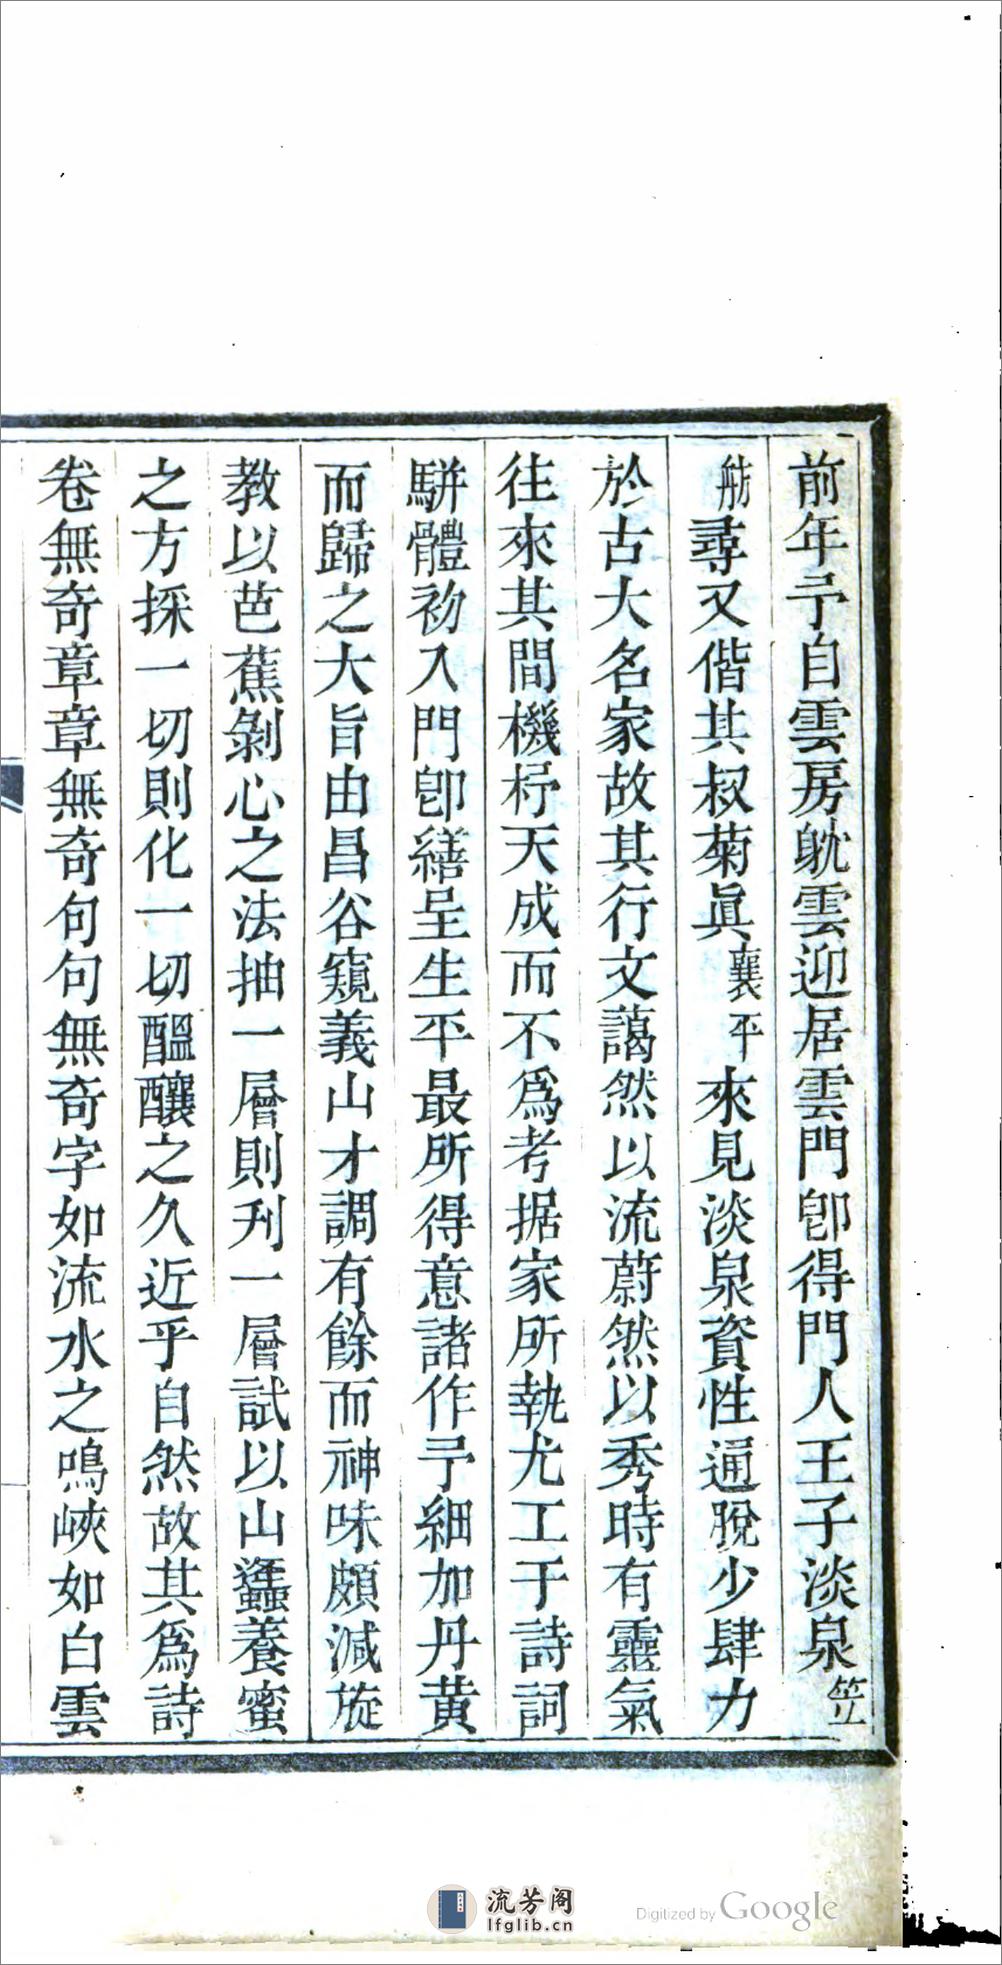 前年予自雲房躭雲迎居雲門卽得門人王子淡泉笠
舫尋又偕其叔菊眞襄平來見淡泉資性通脫少肆力
於古大名家故其行文藹然以流蔚然以秀時有靈氣
往來其間機杼天成而不爲考据家所執尤工于詩詞
駢體初入門卽繕呈生平最所得意諸作予細加丹黄
而歸之大旨由昌谷窺義山才調有餘而神味頗減旋
教以芭蕉剝心之法抽一層則刋一層試以山蠭養蜜
之方採一切則化一切醞釀之久近乎自然故其爲詩
卷無奇章章無奇句句無奇字如流水之鳴峽如白雲
流芳阁
lfglib.cn
Digitized by Google